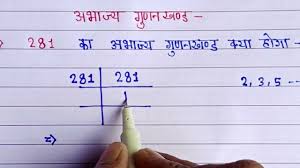 अभाज्य गुणनखण्ड -
⇒ 281 का अभाज्य गुणनखण्ड क्या होगा -
281 | 281 2, 3, 5 --
1
⇒